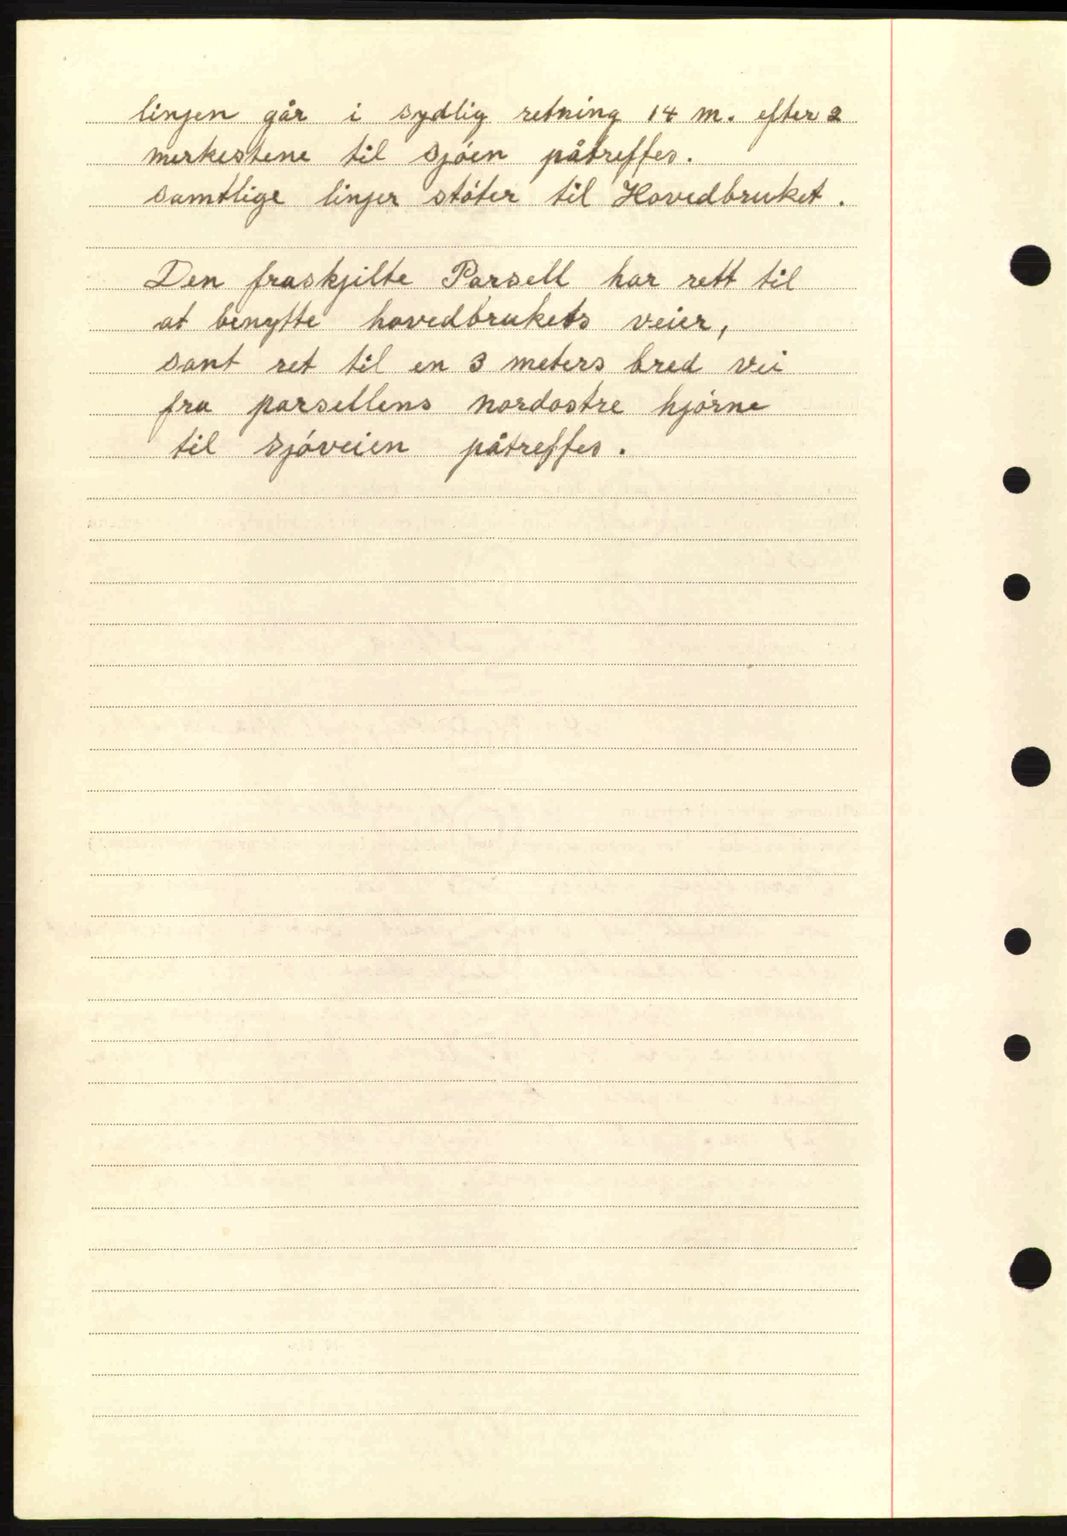 linjen går i sydlig retning 14 m. efter 2
merkestene til sjöen påtreffes.
samtlige linjer stöter til Hovedbruket.
Den fraskjilte Parsell har rett til
at benytte hovedbrukets veier,
samt ret til en 3 meters bred vei
fra parsellens nordostre hjörne
til sjöveien påtreffes.